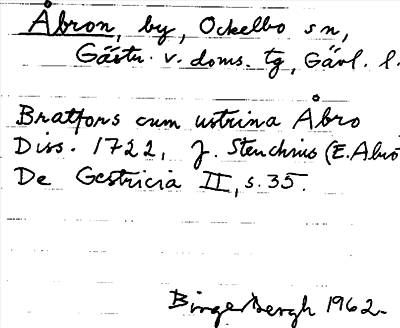 Åbron, by, Ockelbo sn,
Gästr. v. doms. tg, Gävl. l.
Bratfors cum ustrina Åbro
Diss. 1722, J. Stenchius (E. Alrot
De Gestricia II, s. 35.
Birger Bergh 1962